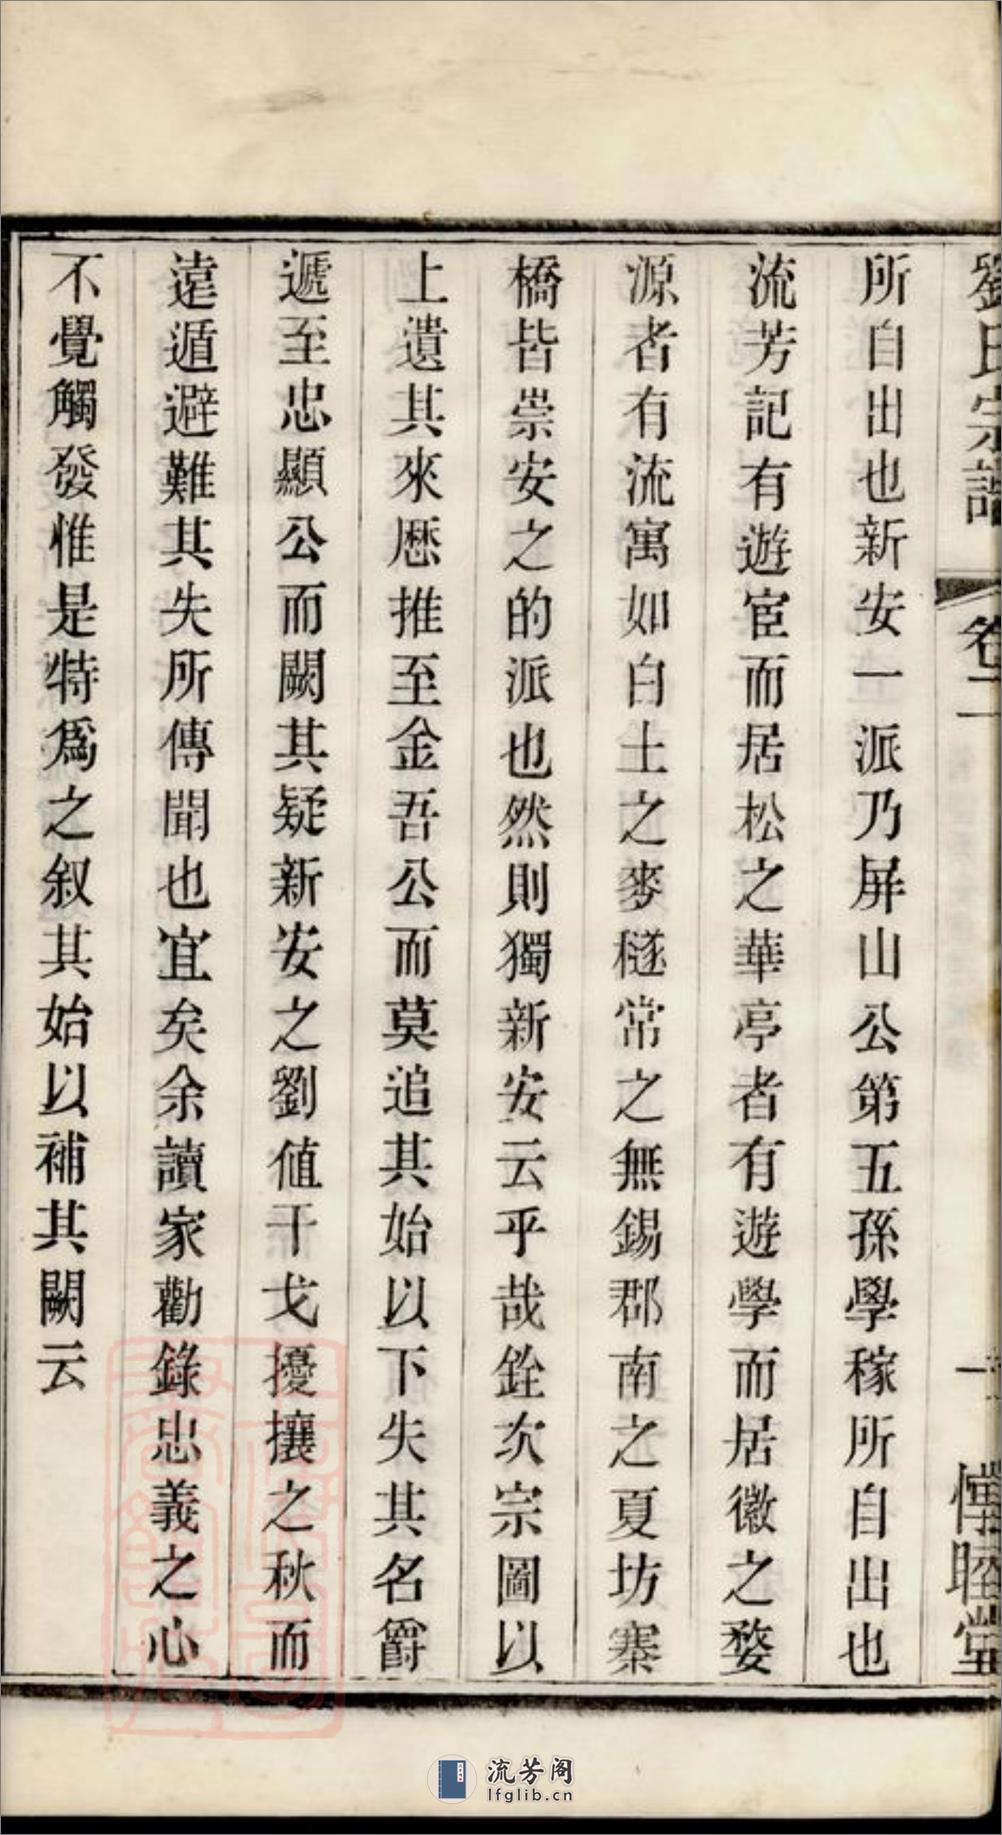 劉氏宗譜 卷二 一 惇睦堂
所自出也新安一派乃屏山公第五孫學稼所自出也
流芳記有遊宦而居松之華亭者有遊學而居徽之婺
源者有流寓如白土之麥檖常之無錫郡南之夏坊寨
橋皆崇安之的派也然則獨新安云乎哉銓次宗圖以
上遺其來歷推至金吾公而莫追其始以下失其名爵
遞至忠顯公而闕其疑新安之劉値干戈擾攘之秋而
遠遁避難其失所傳聞也宜矣余讀家勸錄忠義之心
不覺觸發惟是特爲之叙其始以補其闕云
流芳阁
lfglib.cn